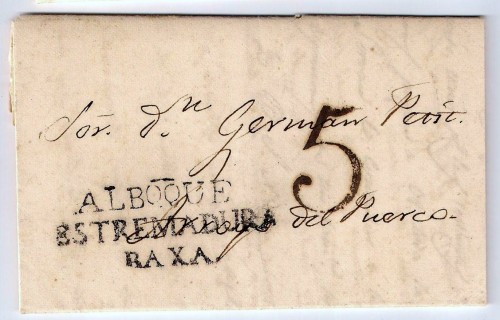 Sor. D.n German Petit.
5
ALBQQUE
ESTREMADURA
BAXA
del Puerco.